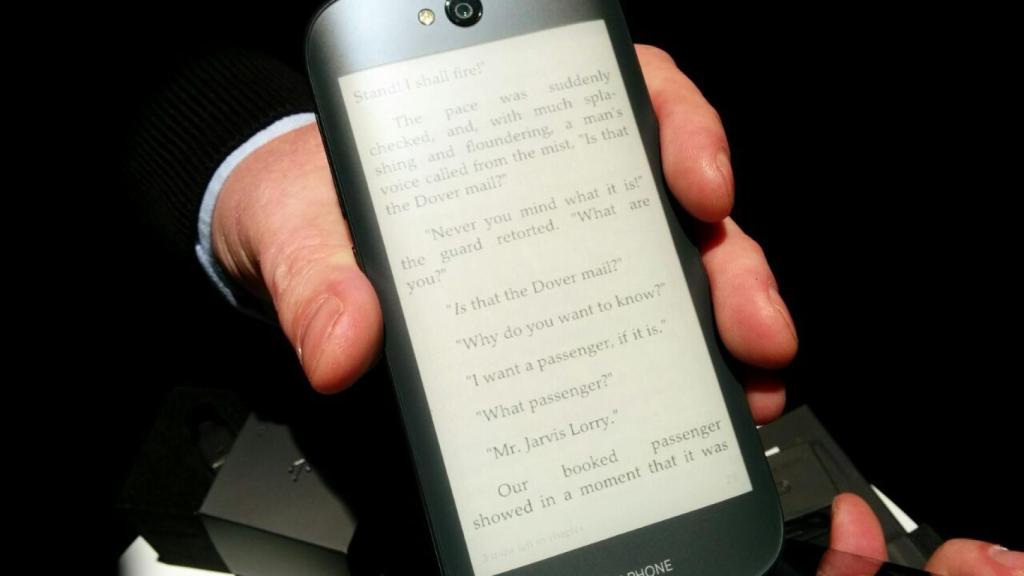 Stand! I shall fire!"
The pace was suddenly
checked, and, with much spla-
shing and floundering, a man's
voice called from the mist, "Is that
the Dover mail?"
"Never you mind what it is!"
the guard retorted. "What are
you?"
"Is that the Dover mail?"
"Why do you want to know?"
"I want a passenger, if it is."
"What passenger?"
"Mr. Jarvis Lorry."
Our booked passenger
showed in a moment that it was
left in chapter
PHONE